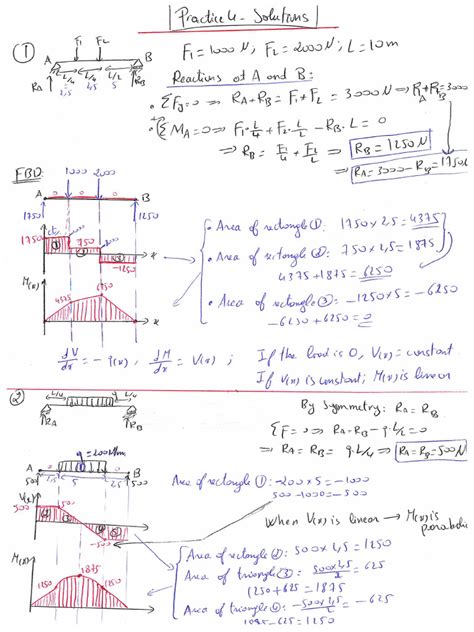 Practice 4 - Solutions
① F1 = 1000 N; F2 = 2000 N; L = 10 m
A F1 F2 B
RA L/4 L/4 L/2 RB
2,5 5
Reactions at A and B:
• ΣFy=0 ⇒ RA+RB = F1+F2 = 3000 N
• ΣMA=0 ⇒ F1·L/4 + F2·L/2 - RB·L = 0
⇒ RB = F1/4 + F2/2 ⇒ RB = 1250 N
⇒ RA = 3000 - RB = 1750N
FBD:
1000 2000
A 0 0 0 B
1750 1250
1750 750 -1250 x
• Area of rectangle ①: 1750 x 2,5 = 4375
• Area of rectangle ②: 750 x 2,5 = 1875
4375+1875 = 6250
• Area of rectangle ③: -1250x5 = -6250
-6250 + 6250 = 0
M(x)
x
dV/dx = -q(x), dM/dx = V(x); If the load is 0, V(x) = constant
If V(x) is constant; M(x) is linear
② L/4 q L/4
RA RB
By Symmetry: RA = RB
ΣF=0 ⇒ RA+RB-q·L/2=0
⇒ RA = RB = q·L/4 ⇒ RA=RB=500N
q = 200 N/m
A 0 0 B
500 2,5 5 2,5 500
Area of rectangle ①: -200 x 5 = -1000
500 -1000 = -500
V(x)
500
-500
When V(x) is linear → M(x) is parabolic
M(x)
1250 1875 1250
x
Area of rectangle ②: 500 x 2,5 = 1250
Area of triangle ③: 500x2,5/2 = 625
1250 + 625 = 1875
Area of triangle ④: -500x2,5/2 = -625
1875 - 625 = 1250